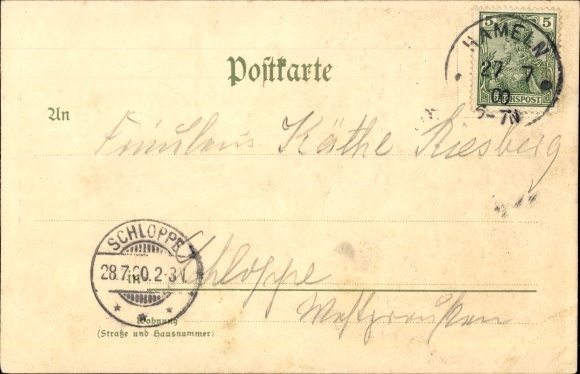 5 5
REICHSPOST
HAMELN
27 7
00
6-7N
Postkarte
An
Fräulein Käthe Riesberg
SCHLOPPE
28.7.00.2-3N.
Schloppe
Westpreußen
Wohnung
(Straße und Hausnummer)